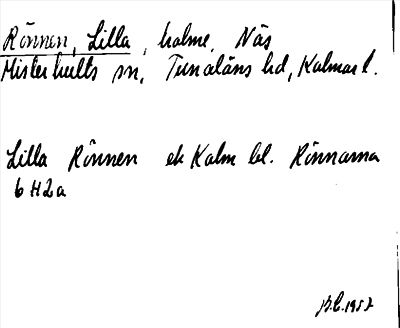 Rönnen, Lilla, holme, Näs
Misterhults sn, Tunaläns hd, Kalmar l.
Lilla Rönnen ek Kalm bl. Rönnarna
6 H2a
1957